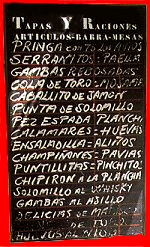 TAPAS Y RACIONES
ARTICULOS-BARRA-MESAS
PRINGA CON TO LO
SERRANITOS = PAELLA
GAMBAS REBOSADAS
COLA DE TORO=
CABALLITO DE JAMON
PUNTA DE SOLOMILLO
PEZ ESPADA PLANCHA
CALAMARES = HUEVAS
ENSALADILLA = ALIÑOS
CHAMPIÑONES = PAVIAS
PUNTILLITAS = PINCHITOS
CHIPIRON A LA PLANCHA
SOLOMILLO AL WHISKY
GAMBAS AL AJILLO
DELICIAS DE
DE
AL NIDO